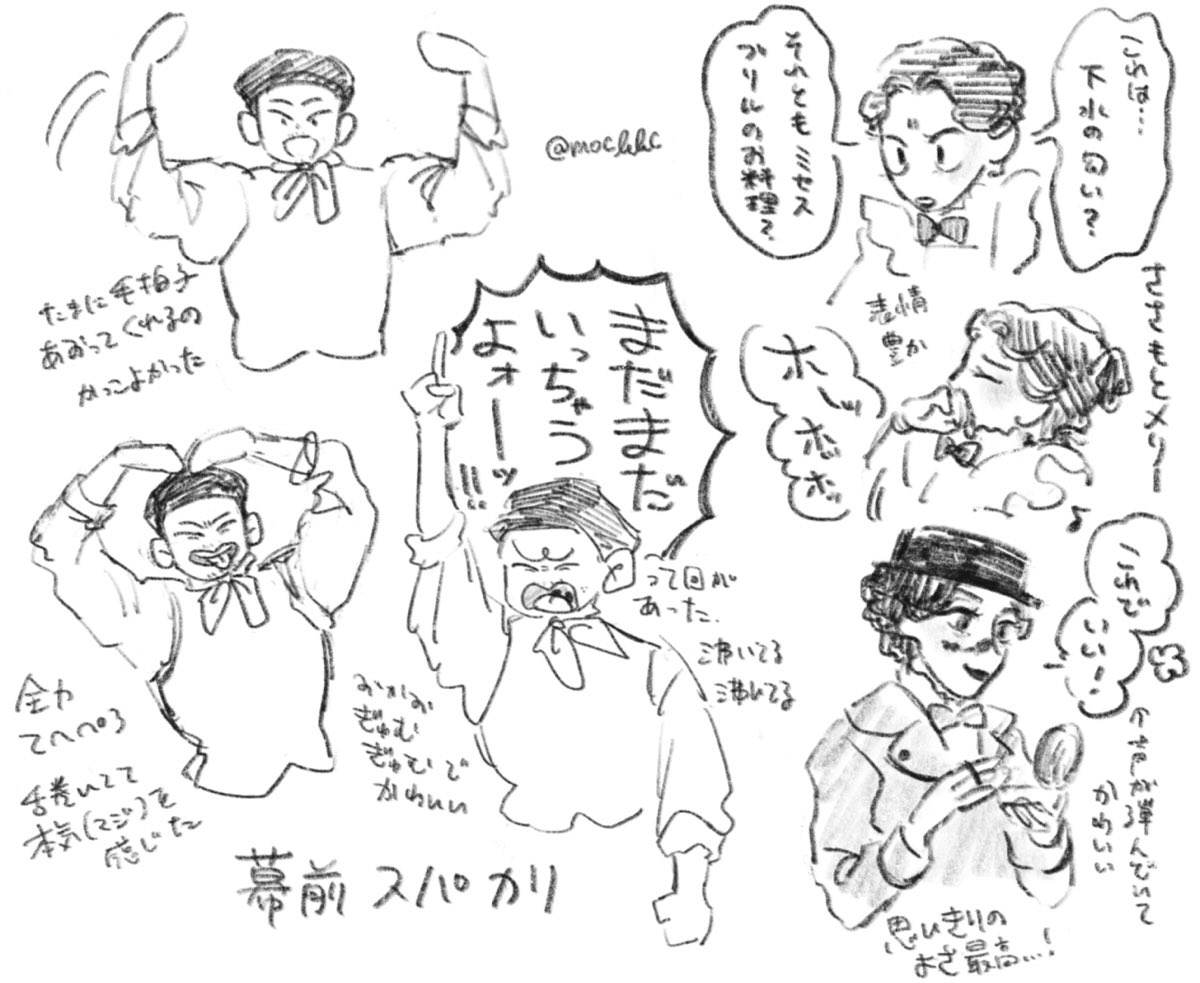 これは…
下水の匂い?
それともミセス
ブリルのお料理?
@mochhc
たまに手拍子
あおってくれるの
かっこよかった
表情
豊か
ささもとメリー
ホッ
ホホッ
まだまだ
いっちゃう
よォーッ!!
って回が
あった.
沸いてる
沸いてる
おかお
ぎゅむ
ぎゅむで
かわいい
全力
てへぺろ
舌巻いてて
本気(マジ)を
感じた
これで
いい!
声が弾んでいて
かわいい
思いきりの
よさ最高…!
幕前スパカリ